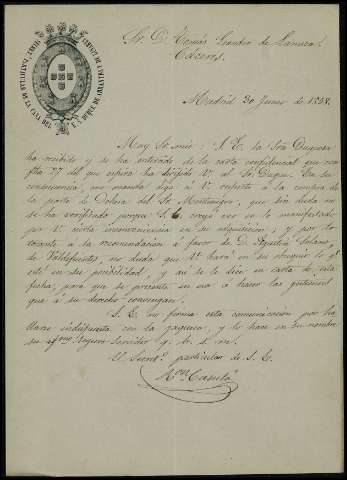 Sr. D. Tomás Leandro de
Cáceres.
Madrid 30 Junio de 1888.
Muy Sr. mio: S. E. la Sra Duquesa
ha recibido y se ha enterado de la carta confidencial que con
fha 27 del que espira ha dirijido Vd al Sr. Duque. En su
consecuencia, me manda diga á Vd respecto á la compra de
la parte de Dolera del Sr. Montenegro, que sin duda no
se ha verificado porque S. E. creyó ver en lo manifestado
por Vd cierta inconveniencia en su adquisicion, y por lo
tocante á la recomendacion á favor de D. Agustin Solano,
de Valdefuentes, no duda que Vd hará en su obsequio lo qe
esté en su posibilidad, y asi se le dice en carta de esta
fecha, para que se presente en esa á hacer las gestiones
que á su derecho convengan.
S. E. no firma esta comunicacion por ha
llarse indispuesta con la jaqueca, y lo hace en su nombre
su afmo. seguro servidor q. b. s. m.
El Secreto. particular de S. E.
Mon